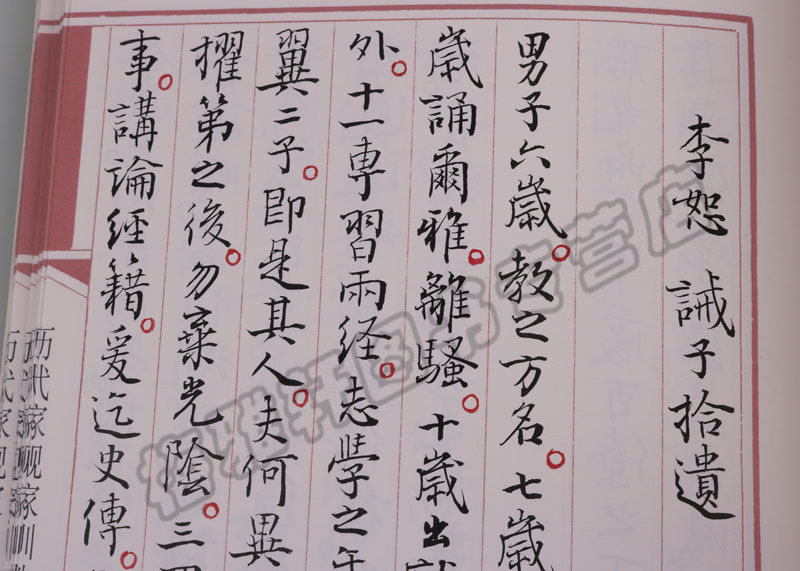 李恕 誡子拾遺
男子六歳。教之方名。七歳
歳誦爾雅。離騷。十歳出
外。十一専習兩経。志學之年
翼二子。即是其人。夫何異
擢第之後。勿棄光陰。三四
事。講論經籍。爰迄史傳。
历代家规家训